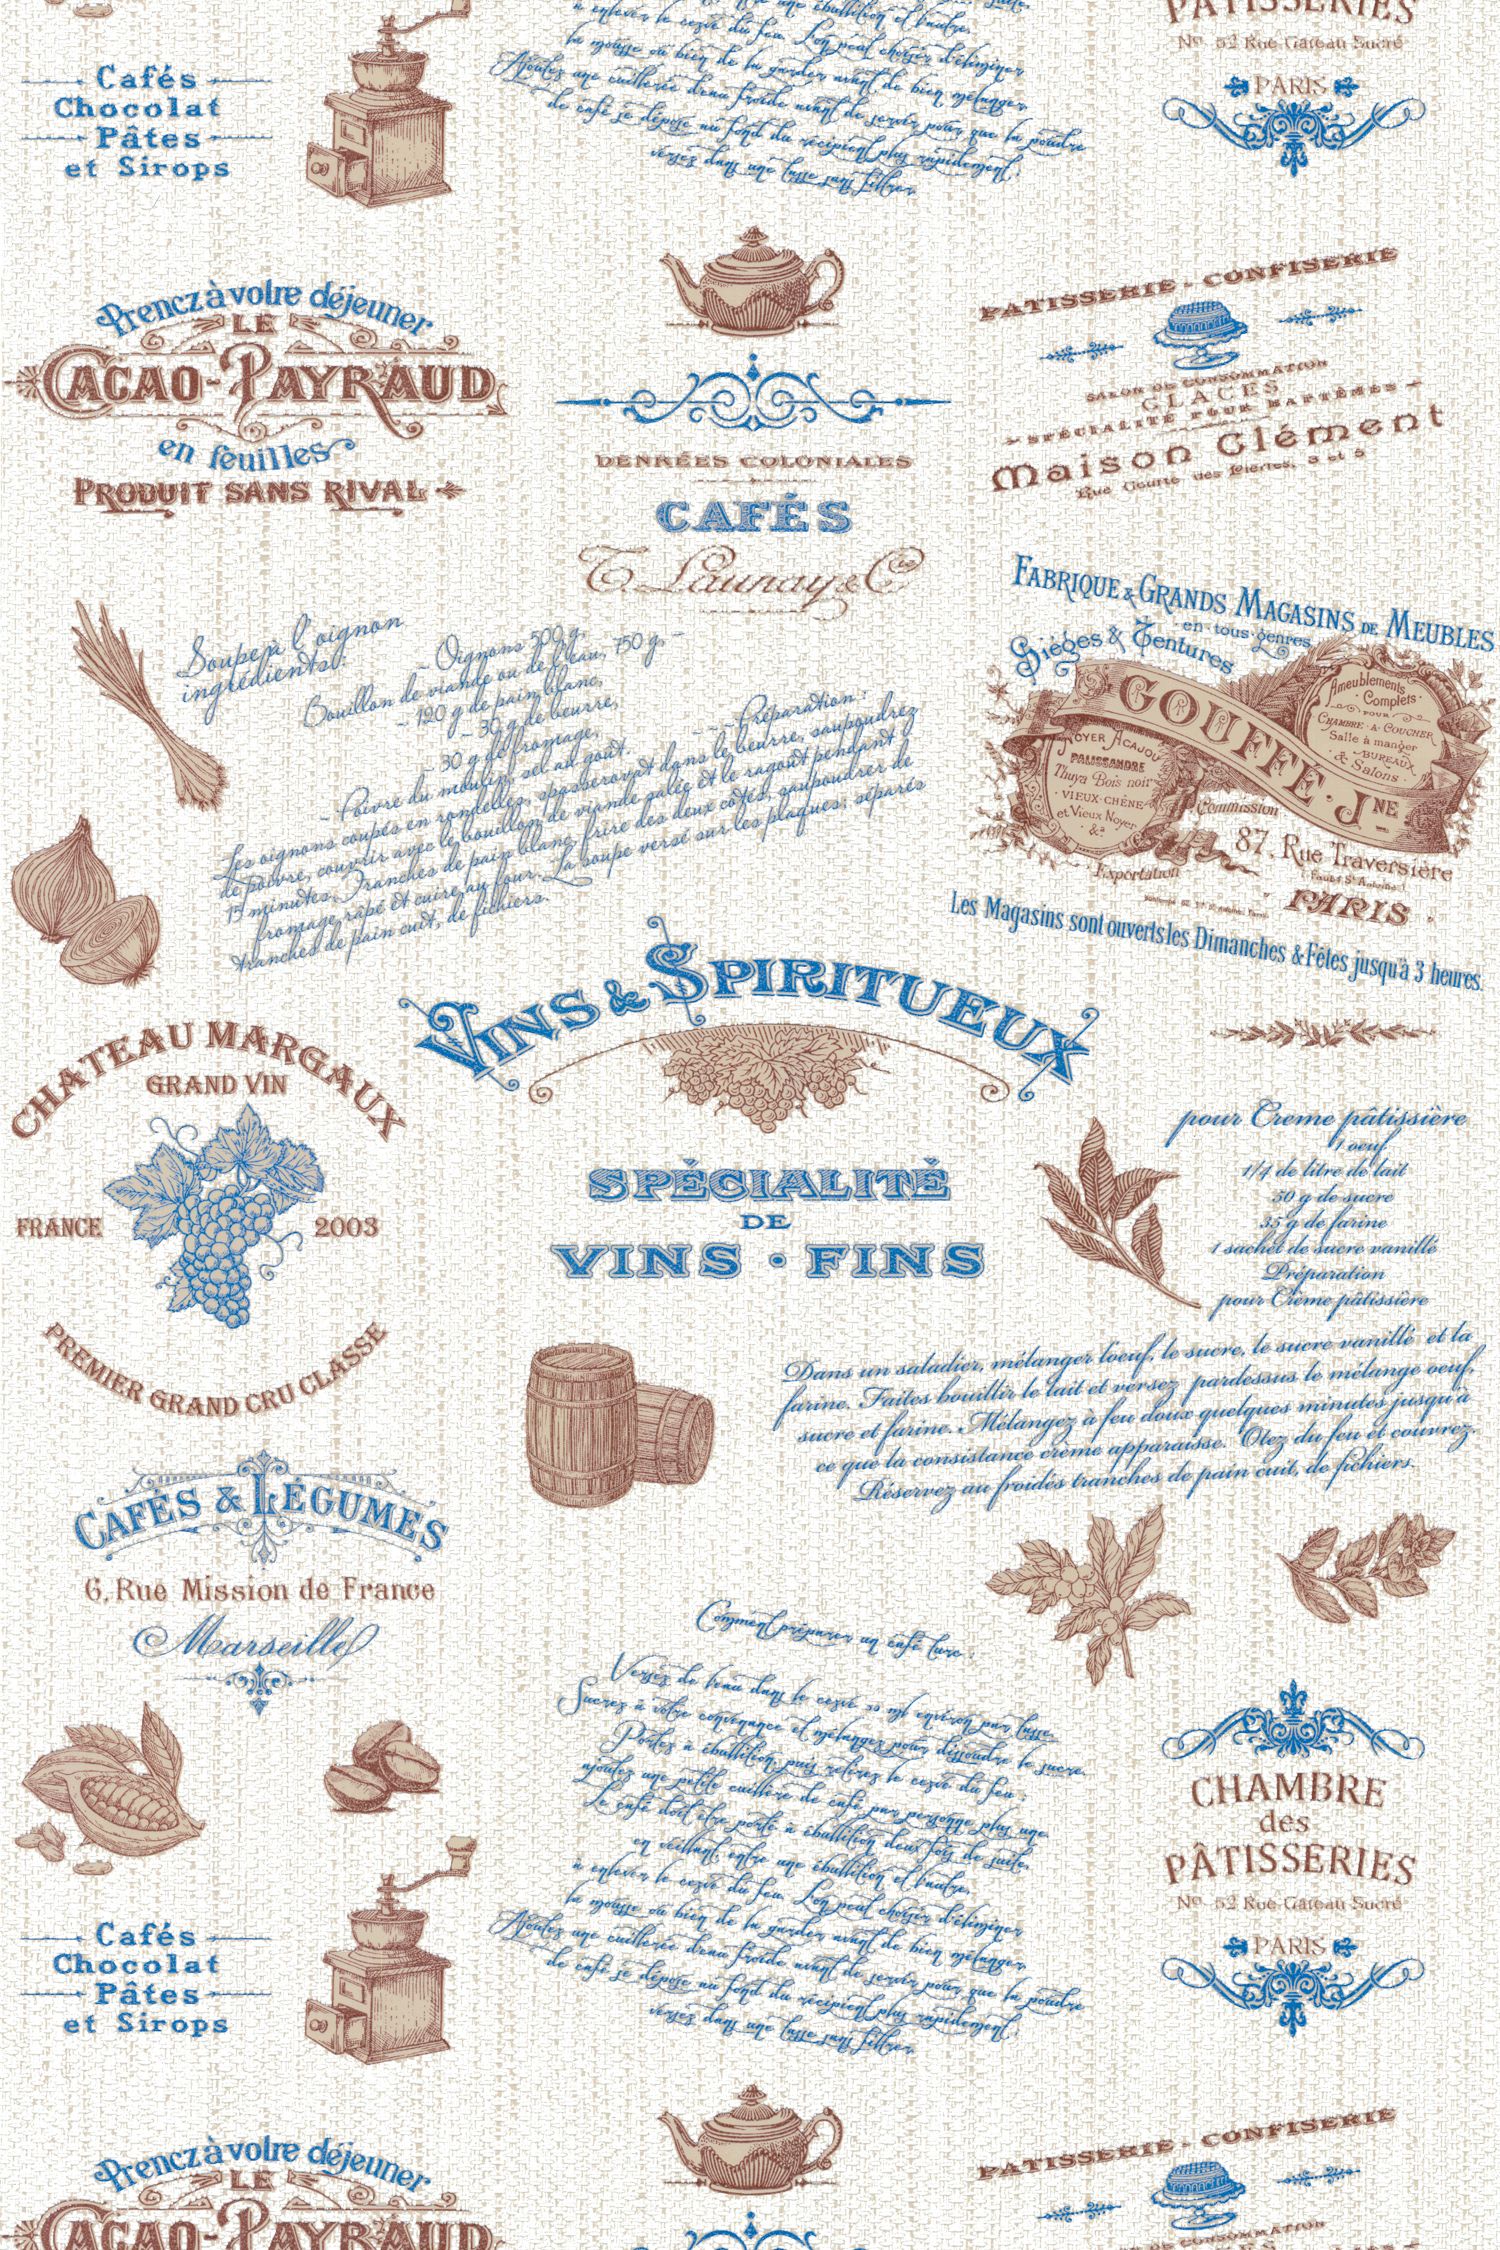 à enlever le cezve du feu. L'on peut choisir d'éliminer
la mousse ou bien de la garder avant de bien mélanger.
Ajoutez une cuillerée d'eau froide avant de servir pour que la poudre
de café se dépose au fond du récipient plus rapidement,
versez dans une tasse sans filtrer.
Cafés
Chocolat
Pâtes
et Sirops
PÂTISSERIES
No. 52 Rue Gateau Sucré
PARIS
Prencz à votre déjeuner
LE
CACAO-PAYRAUD
en feuilles
PRODUIT SANS RIVAL
DENRÉES COLONIALES
CAFÉS
T. Launay & Cie
PATISSERIE - CONFISERIE
SALON DE CONSOMMATION
GLACES
SPÉCIALITÉ POUR BAPTÊMES
Maison Clément
Rue Courte des Pierres, 3 et 5
Soupe à l'oignon
ingrédients:
- Oignons 500 g,
Bouillon de viande ou de l'eau, 750 g, -
- 120 g de pain blanc,
- 30 g de beurre,
- 30 g de fromage,
- Poivre du moulin, sel au goût.
- - Préparation:
Les oignons coupés en rondelles, spasserovat dans le beurre, saupoudrez
de poivre, couvrir avec le bouillon de viande salée et le ragoût pendant
15 minutes. Tranches de pain blanc frire des deux côtés, saupoudrer de
fromage râpé et cuire au four. La soupe versé sur les plaques; séparés
tranches de pain cuit, de fichiers.
FABRIQUE & GRANDS MAGASINS DE MEUBLES
en tous genres
Siéges & Tentures
GOUFFÉ JNE
Ameublements
Complets
POUR
CHAMBRE A COUCHER
Salle à manger
BUREAUX
& Salons
NOYER ACAJOU
PALISSANDRE
Thuya Bois noir
VIEUX-CHÊNE
et Vieux Noyer
&a
Commission
87, Rue Traversière
(Faubg St Antoine)
Exportation
PARIS
Les Magasins sont ouverts les Dimanches & Fêtes jusqu'à 3 heures.
VINS & SPIRITUEUX
CHATEAU MARGAUX
GRAND VIN
FRANCE 2003
PREMIER GRAND CRU CLASSE
SPÉCIALITÉ
DE
VINS · FINS
pour Creme pâtissière
1 oeuf
1/4 de litre de lait
50 g de sucre
35 g de farine
1 sachet de sucre vanillé
Préparation
pour Crème pâtissière
Dans un saladier, mélanger l'oeuf, le sucre, le sucre vanillé et la
farine. Faites bouillir le lait et versez pardessus le mélange oeuf,
sucre et farine. Mélangez à feu doux quelques minutes jusqu'à
ce que la consistance crème apparaisse. Otez du feu et couvrez.
Réservez au froidés tranches de pain cuit, de fichiers.
CAFÉS & LÉGUMES
6, Rue Mission de France
Marseille
Comment préparer un café turc:
Versez de l'eau dans le cezve 50 ml environ par tasse.
Sucrez à votre convenance et mélangez pour dissoudre le sucre.
Portez à ébullition puis retirez le cezve du feu;
ajoutez une petite cuillère de café par personne plus une.
Le café doit être porté à ébullition deux fois de suite,
en veillant, entre une ébullition et l'autre,
à enlever le cezve du feu. L'on peut choisir d'éliminer
la mousse ou bien de la garder avant de bien mélanger.
Ajoutez une cuillerée d'eau froide avant de servir pour que la poudre
de café se dépose au fond du récipient plus rapidement,
versez dans une tasse sans filtrer.
CHAMBRE
des
PÂTISSERIES
No. 52 Rue Gateau Sucré
PARIS
Cafés
Chocolat
Pâtes
et Sirops
Prencz à votre déjeuner
LE
CACAO-PAYRAUD
PATISSERIE - CONFISERIE
CONSOMMATION